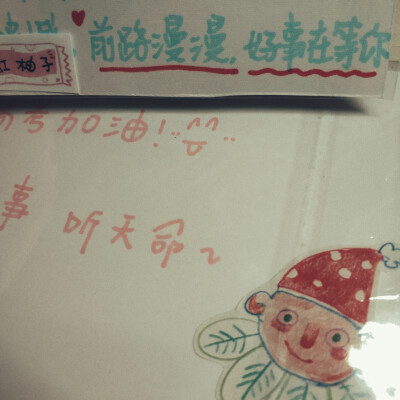 前路漫漫，好事在等你
红柚子
考加油！
事 听天命～